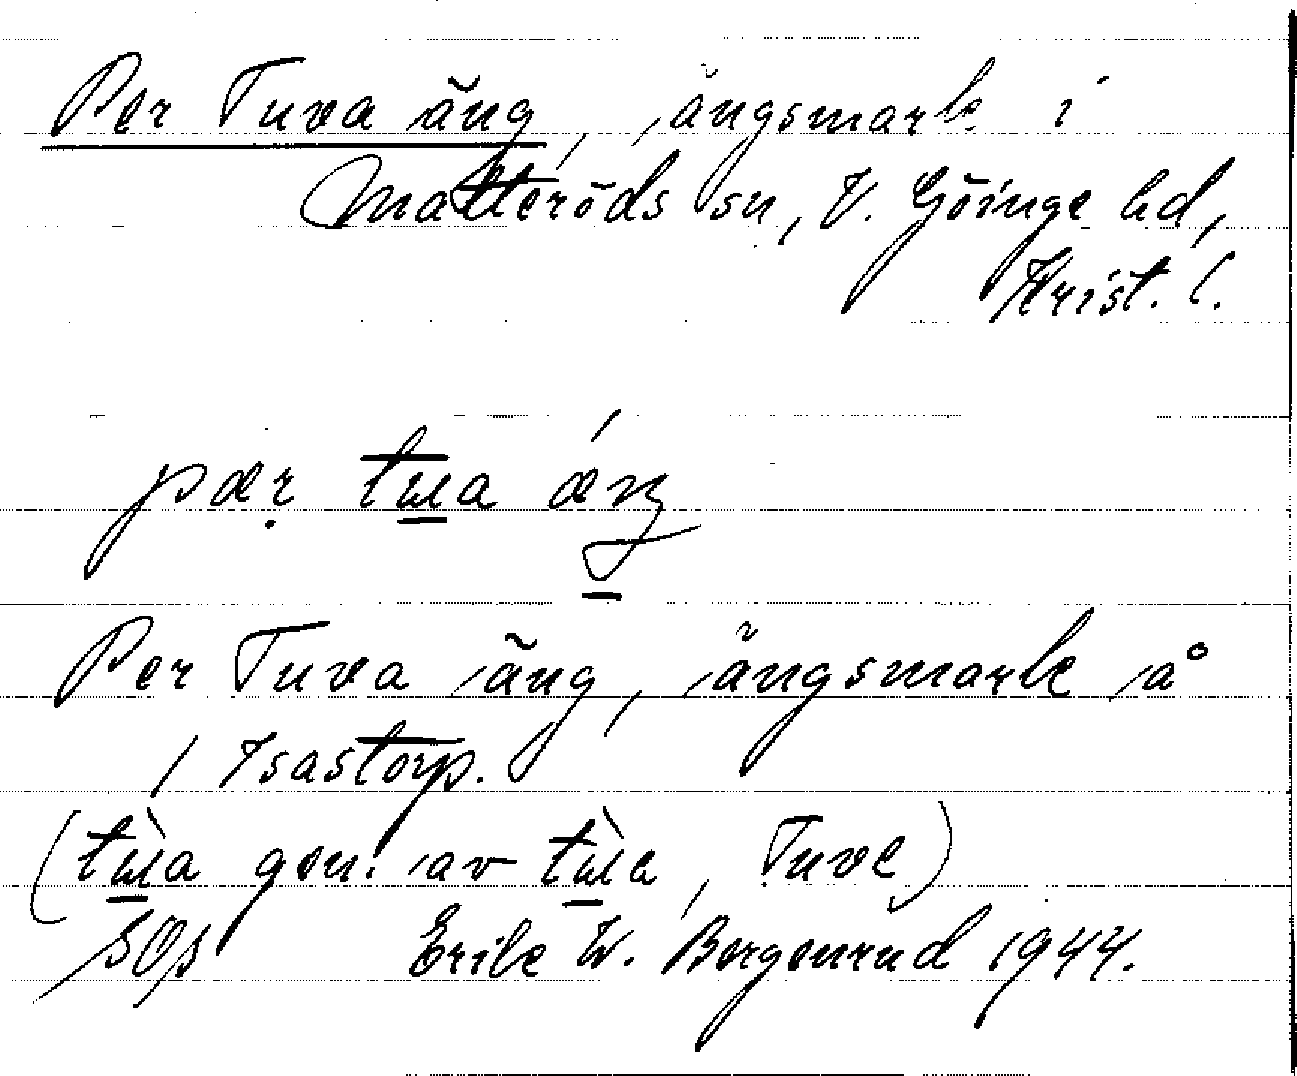 Per Tuva äng, ängsmark i
Matteröds sn, V. Göinge hd,
Krist. l.
pær tɯa ǽŋ
Per Tuva äng, ängsmark å
1 Isastorp.
(tɯ̀a gen. av tɯ̀e, Tuve)
SOþ Erik W. Bergenrud 1944.